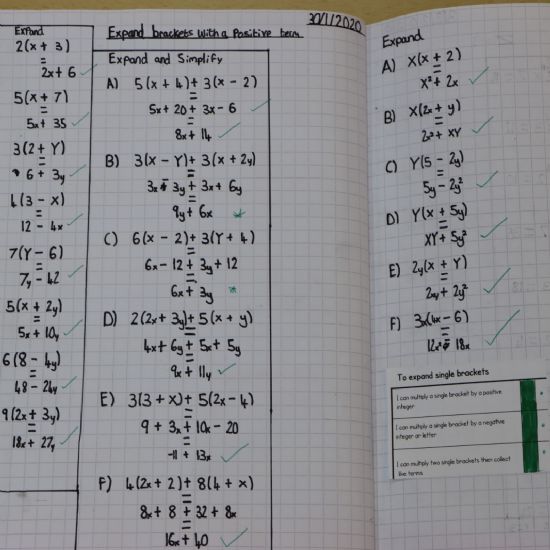 Expand
2(x + 3)
=
2x + 6
5(x + 7)
=
5x + 35
3(2 + Y)
=
6 + 3y
4(3 - x)
=
12 - 4x
7(Y - 6)
=
7y - 42
5(x + 2y)
=
5x + 10y
6(8 - 4y)
=
48 - 24y
9(2x + 3y)
=
18x + 27y
30/1/2020
Expand brackets with a Positive term
Expand and Simplify
A) 5(x + 4) + 3(x - 2)
=
5x + 20 + 3x - 6
=
8x + 14
B) 3(x - Y) + 3(x + 2y)
=
3x - 3y + 3x + 6y
=
9y + 6x
C) 6(x - 2) + 3(Y + 4)
=
6x - 12 + 3y + 12
=
6x + 3y
D) 2(2x + 3y) + 5(x + y)
=
4x + 6y + 5x + 5y
=
9x + 11y
E) 3(3 + x) + 5(2x - 4)
=
9 + 3x + 10x - 20
=
-11 + 13x
F) 4(2x + 2) + 8(4 + x)
=
8x + 8 + 32 + 8x
=
16x + 40
Expand
A) X(x + 2)
=
x² + 2x
B) X(2x + y)
=
2x² + XY
C) Y(5 - 2y)
=
5y - 2y²
D) Y(x + 5y)
=
XY + 5y²
E) 2y(x + Y)
=
2xy + 2y²
F) 3x(4x - 6)
=
12x² - 18x
To expand single brackets
I can multiply a single bracket by a positive
integer
I can multiply a single bracket by a negative
integer or letter
I can multiply two single brackets then collect
like terms